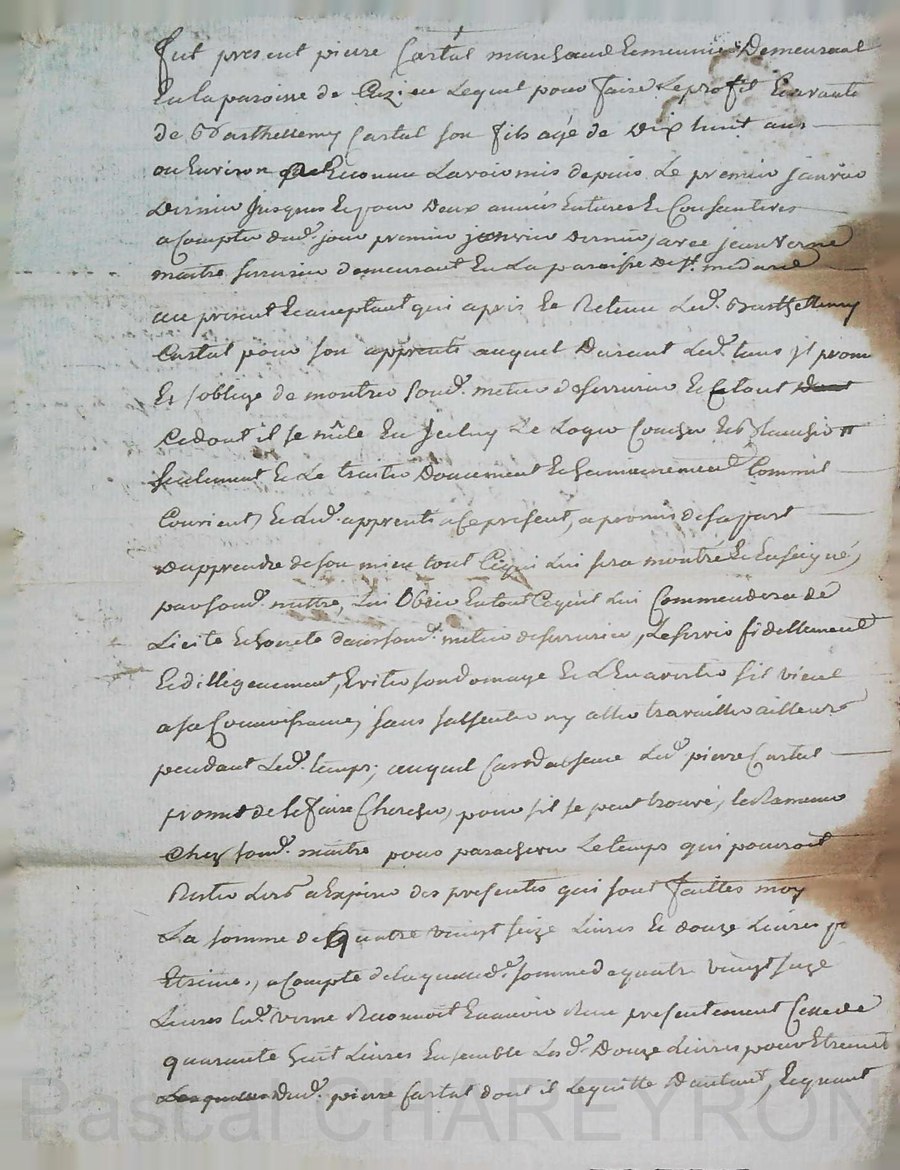 fut present pierre Cartal marchand & meunier Demeurant
En la paroisse de Cuzieu Lequel pour faire Le profit & avante
de Barthellemy Cartal son fils agé de Dix huit ans
ou Environ Reconnu Lavoir mis depuis Le premier janvier
Dernier jusques & pour Deux années Entieres & Consecutives
a Compter dud. jour premier janvier Dernier, avec jean Verne
maitre serrurier demeurant En La paroisse De St. medard
au present & acceptant qui a pris & Retenu Led. Barthellemy
Cartal pour son apprenti auquel Durant Led. tems jl prom
& s'oblige de montrer sond. metier de serrurier & Et tout
Ce dont il se mêle En jceluy Le Loger Coucher & Blanchir
seulement & Le traiter Doucement & humainement Comme il
Convient, & Led. apprenti a ce present, a promis de sa part
D'apprendre de son mieux tout Ce qui Lui sera montré & Enseigné,
par sond. maitre, Lui Obeir En tout Ce quil Lui Commendera de
Licite & honete dans sond. metier de serrurier, Le servir fidellement
& dilligemment, Eviter son domage & L'En avertir s'il vient
a sa Connoissance, sans s'absenter ny aller travailler ailleurs
pendant Led. temps; auquel Cas D'absence Led. pierre Cartal
promet de le faire Chercher, pour s'il se peut trouvé, le Ramener
Chez sond. maitre pour parachever Le temps qui pourroit
Rester Lors a Expirer des presentes qui sont faittes moy
La somme de quatre vingt seize Livres & douze Livres p
Etrenne, a Compte de laquelle somme de quatre vingt seize
Livres Led. Verne Reconnoit En avoir Reçu presentement Celle de
quarante huit Livres Ensemble Lesd. Douze Livres pour Etrenne
Dud. pierre Cartal dont il Le quitte D'autant, & quant
Pascal CHAREYRON